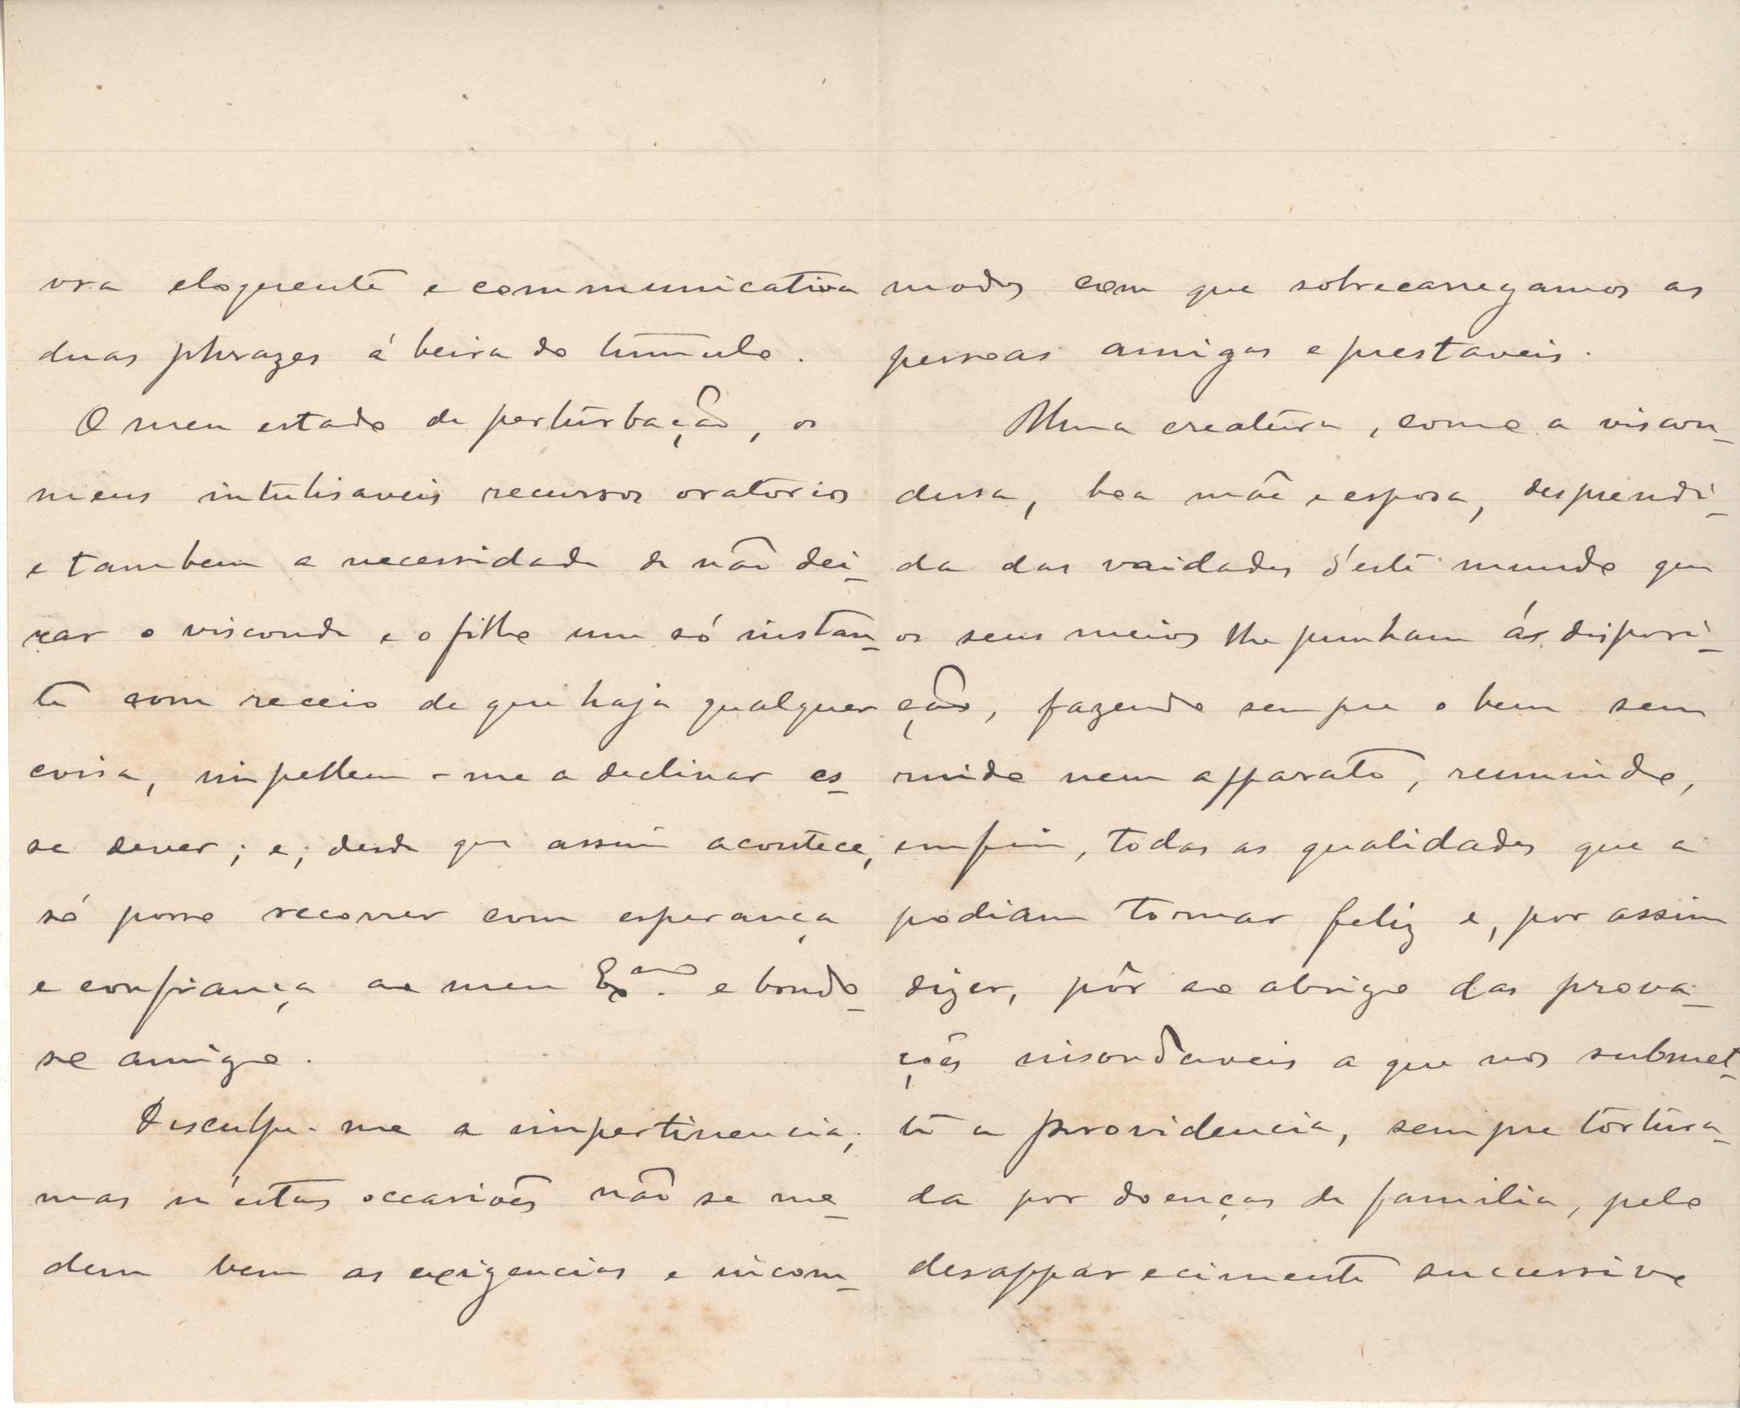 vra eloquente e communicativa
duas phrazes á beira do tumulo.
O meu estado de perturbação, os
meus inutilisaveis recursos oratorios
e tambem a necessidade de não dei-
xar o visconde e o filho um só instan-
te com receio de que haja qualquer
coisa, impellem-me a declinar es-
se dever; e, desde que assim acontece,
só posso recorrer com esperança
e confiança ao meu Ex.mo e bondo-
so amigo.
Desculpe-me a impertinencia;
mas n'estas occasiões não se me-
dem bem as exigencias e incom-
modos com que sobrecarregamos as
pessoas amigas e prestaveis.
Uma creatura, como a viscon-
dessa, boa mãe e esposa, desprendi-
da das vaidades d'este mundo que
os seus meios lhe punham ás disposi-
ção, fazendo sempre o bem sem
ruido nem apparato, reunindo,
emfim, todas as qualidades que a
podiam tornar feliz e, por assim
dizer, pôr ao abrigo das prova-
ções insondaveis a que nos submet-
te a providencia, sempre tortura-
da por doenças de familia, pelo
desapparecimento successivo